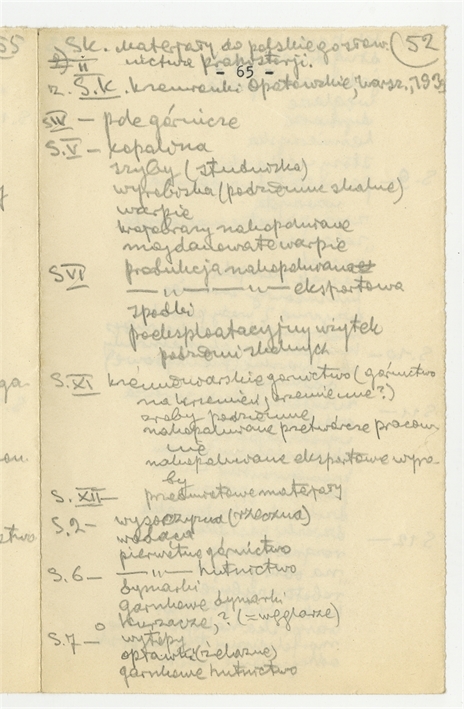 Sk. Materjały do polskiego słown. 52
nictwa prahistorji.
- 65 -
2. S.K. krzemionki Opatowskie, Warsz., 193
SIV – pole górnicze
S.V – kopalnia
szyby (studnisko)
wyrobiska (podziemne skalne)
warpie
krajobrazy nakopalniane
majdanowate warpie
SVI produkcja nakopalniana
— „ — — „ — eksportowa
zpodki
poeksploatacyjny użytek
podziemi skalnych
S.XI krzemieniarskie górnictwo (górnictwo
na krzemień, krzemienne?)
zroby podziemne
nakopalniane przetwórcze pracow-
nie
nakopalniane eksportowe wyro-
by
S. XII – przedmiotowe materjały
S.2 – wysoczyzna (rzeczna)
pierwotne górnictwo
S. 6 – — „ — hutnictwo
dymarki
garnkowe dymarki
kurzacze,? (= węglarze)
S.7 – wytopy
oprawki (żelazne)
garnkowe hutnictwo
55
ga-